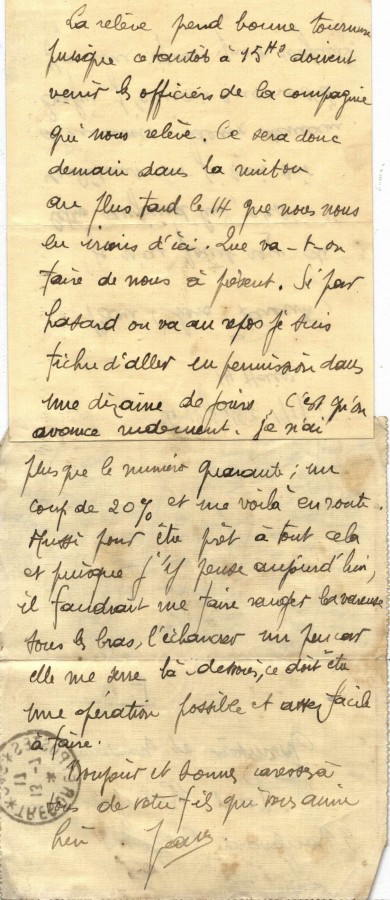 La relève prend bonne tournure
puisque ce tantôt à 15H0 doivent
venir les officiers de la compagnie
qui nous relève. Ce sera donc
demain dans la nuit ou
au plus tard le 14 que nous nous
en irions d'ici. Que va-t-on
faire de nous à présent. Si par
hasard on va au repos je suis
fichu d'aller en permission dans
une dizaine de jours. C'est qu'on
avance rudement. Je n'ai
plus que le numéro quarante; un
coup de 20% et me voilà en route.
Aussi pour être prêt à tout cela
et puisque j'y pense aujourd'hui,
il faudrait me faire la vareuse
sous les bras, l'échancrer un peu car
elle me serre là dessous, ce doit être
une opération possible et assez facile
à faire.
Bonjour et bonnes caresses à
tous de votre fils qui vous aime
bien
13-7
17